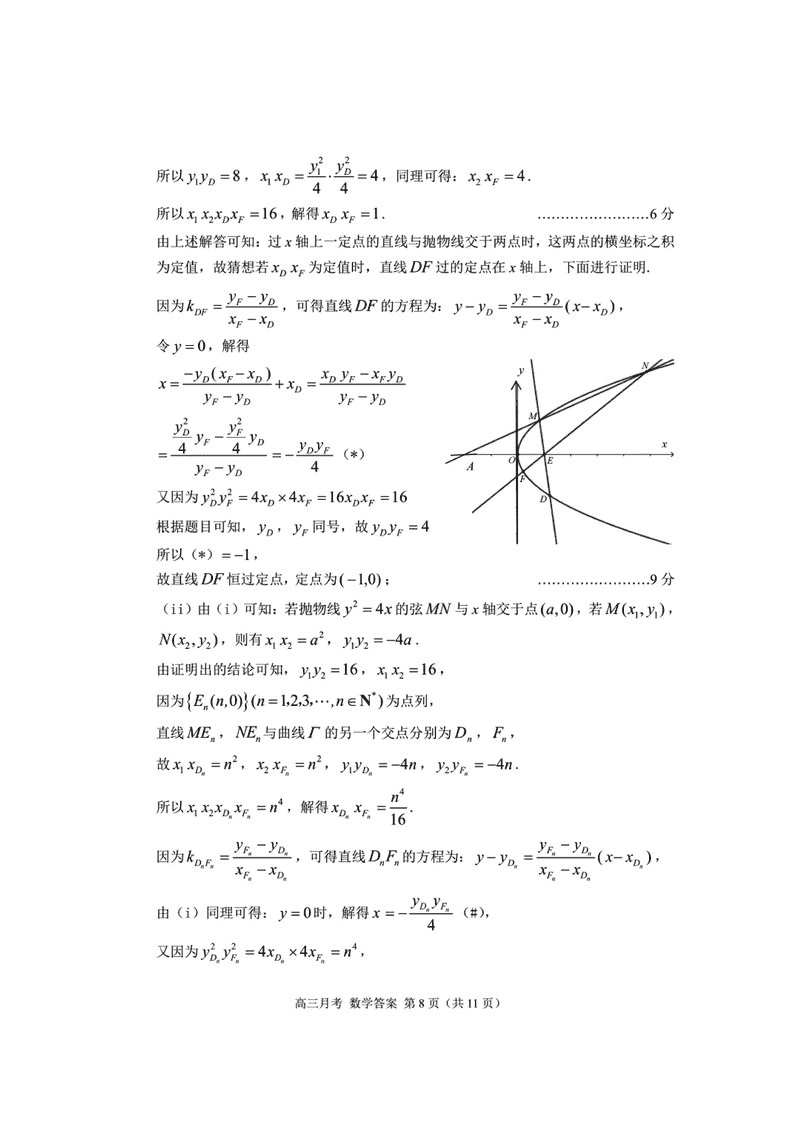 所以 y₁y_D = 8，x₁x_D = y₁²/4 · y_D²/4 = 4，同理可得：x₂x_F = 4．
所以 x₁x₂x_Dx_F = 16，解得 x_Dx_F = 1．……………………6 分
由上述解答可知：过 x 轴上一定点的直线与抛物线交于两点时，这两点的横坐标之积
为定值，故猜想若 x_Dx_F 为定值时，直线 DF 过的定点在 x 轴上，下面进行证明．
因为 k_DF = (y_F − y_D)/(x_F − x_D)，可得直线 DF 的方程为：y − y_D = (y_F − y_D)/(x_F − x_D) (x − x_D)，
令 y = 0，解得
x = −y_D(x_F − x_D)/(y_F − y_D) + x_D = (x_Dy_F − x_Fy_D)/(y_F − y_D)
= (y_D²/4 y_F − y_F²/4 y_D)/(y_F − y_D) = − y_Dy_F/4（*）
y
N
M
x
A
O
E
F
D
又因为 y_D²y_F² = 4x_D × 4x_F = 16x_Dx_F = 16
根据题目可知，y_D，y_F 同号，故 y_Dy_F = 4
所以（*）= −1，
故直线 DF 恒过定点，定点为(−1,0)；……………………9 分
（ii）由（i）可知：若抛物线 y² = 4x 的弦 MN 与 x 轴交于点(a,0)，若 M(x₁,y₁)，
N(x₂,y₂)，则有 x₁x₂ = a²，y₁y₂ = −4a．
由证明出的结论可知，y₁y₂ = 16，x₁x₂ = 16，
因为{E_n(n,0)}(n = 1,2,3,⋯,n ∈ N*)为点列，
直线 ME_n，NE_n 与曲线 Γ 的另一个交点分别为 D_n，F_n，
故 x₁x_{D_n} = n²，x₂x_{F_n} = n²，y₁y_{D_n} = −4n，y₂y_{F_n} = −4n．
所以 x₁x₂x_{D_n}x_{F_n} = n⁴，解得 x_{D_n}x_{F_n} = n⁴/16．
因为 k_{D_nF_n} = (y_{F_n} − y_{D_n})/(x_{F_n} − x_{D_n})，可得直线 D_nF_n 的方程为：y − y_{D_n} = (y_{F_n} − y_{D_n})/(x_{F_n} − x_{D_n}) (x − x_{D_n})，
由（i）同理可得：y = 0 时，解得 x = − y_{D_n}y_{F_n}/4（#），
又因为 y_{D_n}²y_{F_n}² = 4x_{D_n} × 4x_{F_n} = n⁴，
高三月考 数学答案 第 8 页（共 11 页）